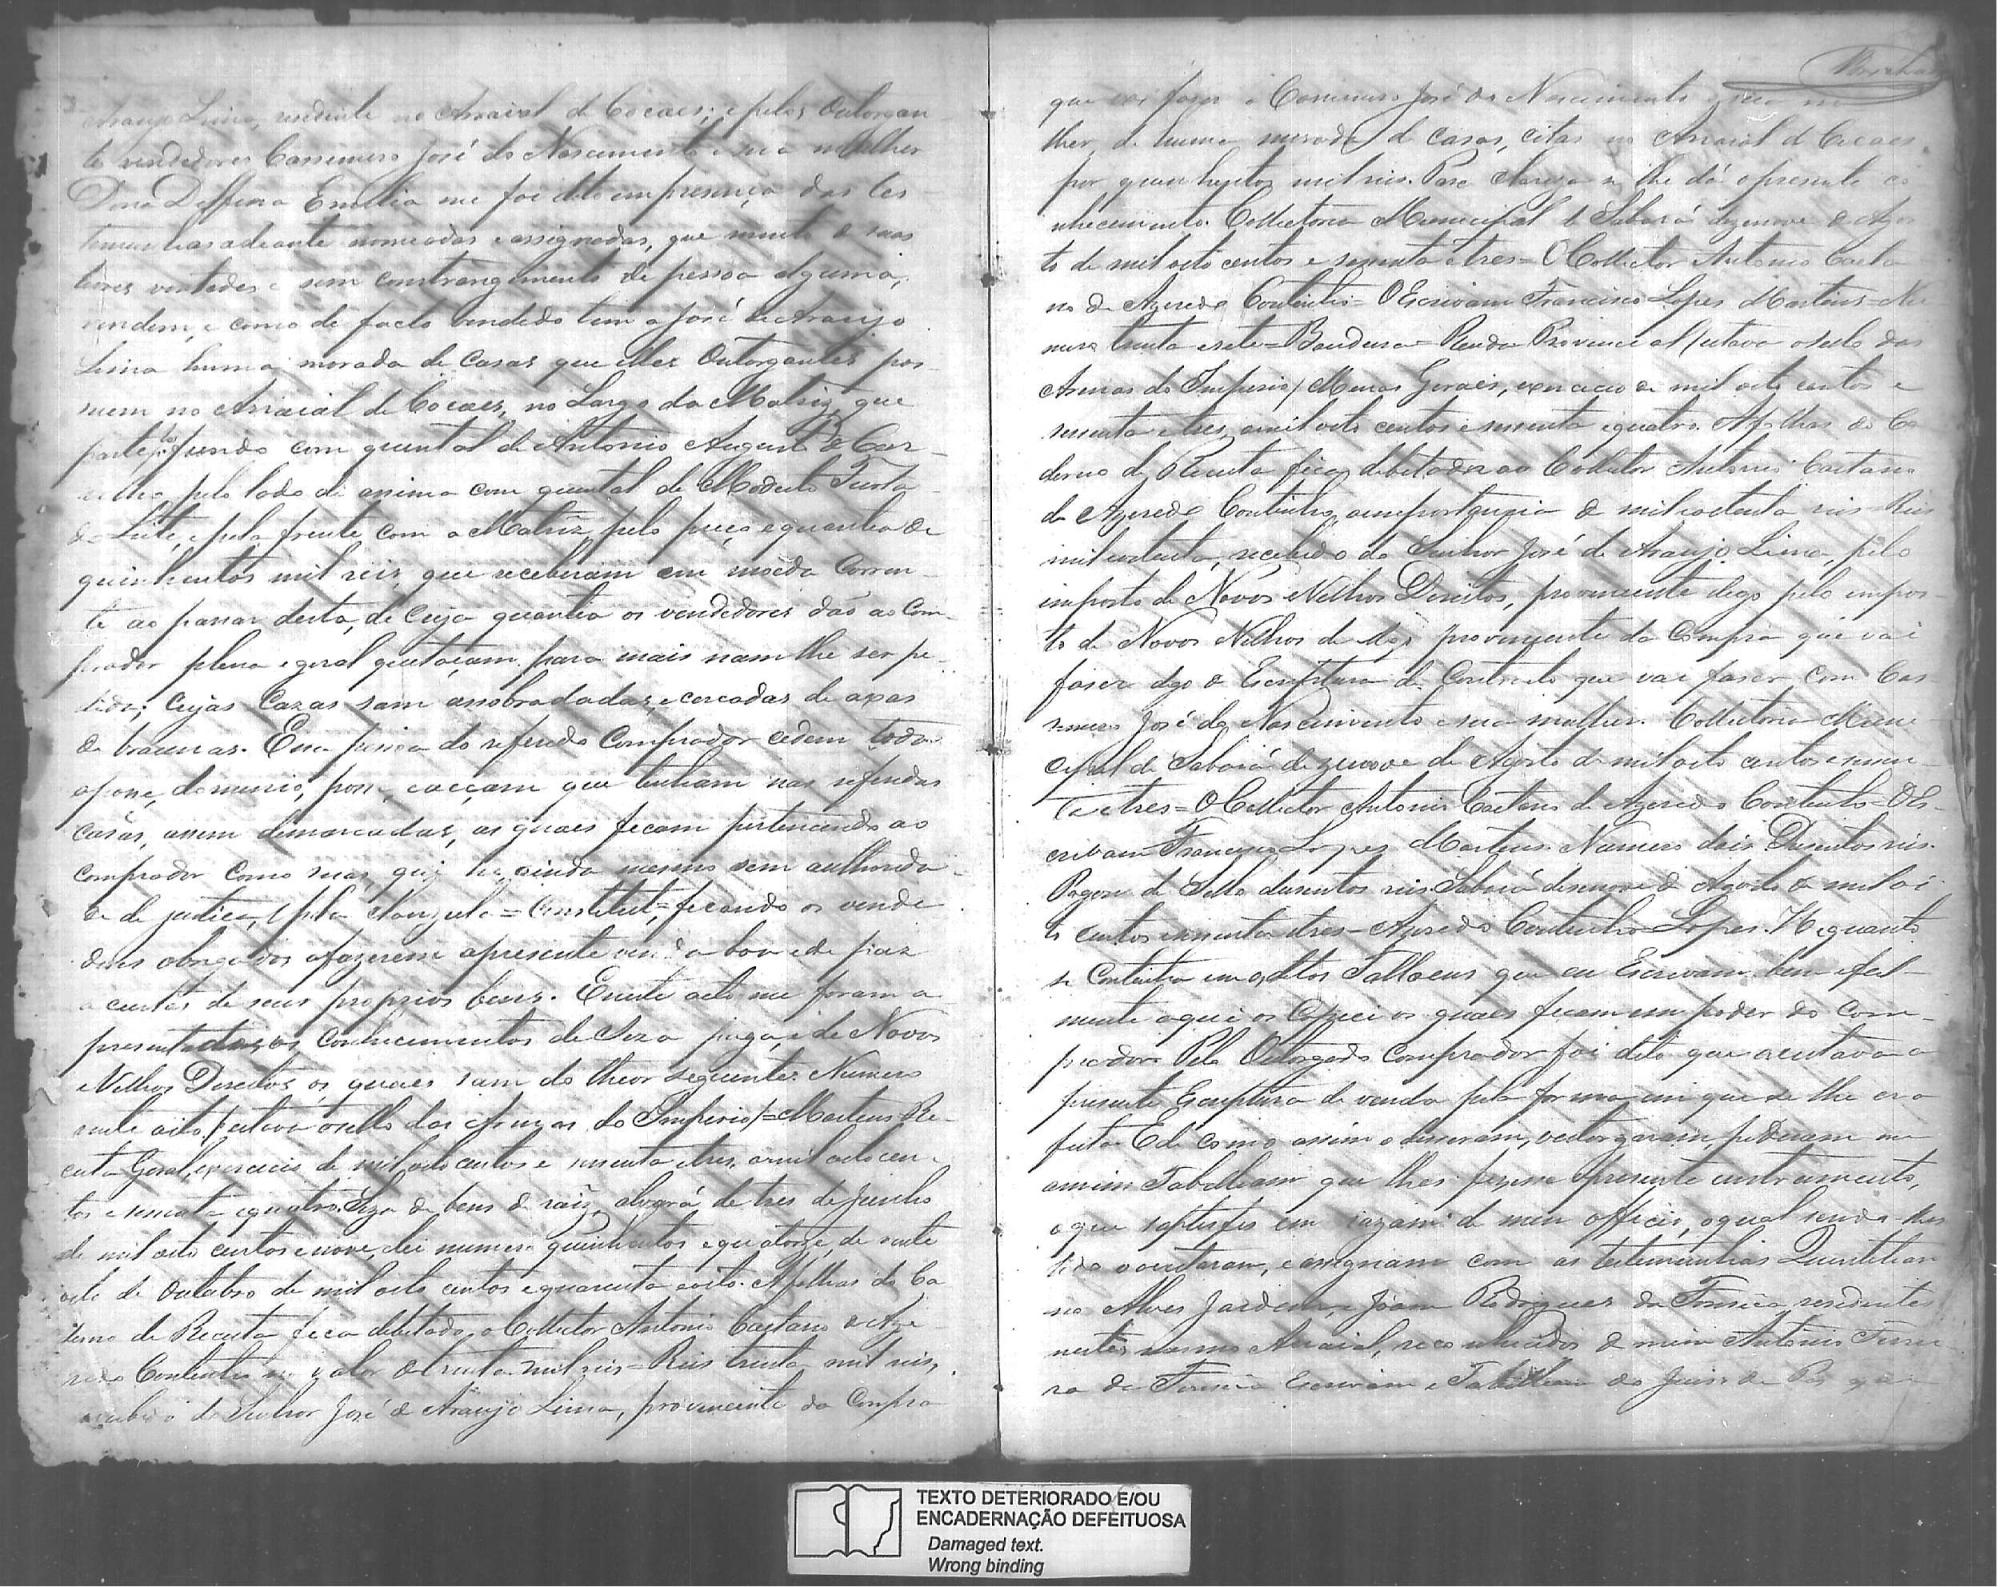 Araujo Lima, residente no Arraial de Cocaes; e pelos Outorgan-
te vendedores Cassemiro José do Nascimento e sua mulher
Dona Delfina Emilia me foi dito em presença das tes-
temunhas adeante nomeadas e assignadas, que muito de suas
livres vontades e sem constrangimento de pessoa alguma,
vendem, e como de facto vendido tem a José de Araujo
Lima huma morada de casas que elles Outorgantes pos-
suem no Arraial de Cocaes, no Largo da Matriz, que
parte, fundo com quintal de Antonio Augusto de
pelo lado de assima com quintal de Modesto
Leite, e pela frente com a Matriz, pelo preço e quantia de
quinhentos mil reis, que receberam em moeda Corren-
te ao passar desta, de cuja quantia os vendedores dão ao Com-
prador plena e geral quitaçam, para mais nam lhe ser pe-
dida; Cujas Cazas sam assobradadas, e cercadas de axas
de braunas. E na pessoa do referido Comprador cedem toda
a posse, dominio, e acçam que tenham nas referidas
casas, assim demarcadas, as quaes ficam pertencendo ao
Comprador como suas, que he, ainda mesmo sem authorida-
de de justiça, pela Clauzula = Constituti = ficando os vende
dores obrigados a fazerem a presente venda boa e de paz
a custa de seus proprios bens. E neste acto me foram a
presentados os Conhecimentos de Siza paga, e de Novos
e Velhos Direitos, os quaes sam do theor seguinte: Numero
vinte oito (estava o sello das Armas do Imperio) = Martins Re-
ceita Geral, exercicio de mil oito centos e sessenta e tres, a mil oito cen-
tos e sessenta e quatro. Siza de bens de raiz, alvará de tres de Junho
de mil oito centos e nove, Lei numero quinhentos e quatorze, de vinte
oito de Outubro de mil oito centos e quarenta e oito. A folhas do Ca
derno de Receita fica debitado, o Collector Antonio Caetano de Aze-
redo Coutinho no valor de trinta mil reis = Reis trinta mil reis,
recebido do Senhor José de Araujo Lima, proveniente da Compra
que vai fazer a Cassemiro José do Nascimento e sua mu
lher, de huma morada de casas, citas no Arraial de Cocaes
por quinhentos mil reis. Para clareza se lhe dá o presente co
nhecimento. Collectoria Municipal de Sabará dezenove de Agos
to de mil oito centos e sessenta e tres = O Collector Antonio Caeta
no de Azeredo Coutinho = O Escrivam Francisco Lopes Martins = Nu
mero trinta e sete = Bandeira = Renda Provincial (estava o sello das
Armas do Imperio) Minas Geraes, exercicio de mil oito centos e
sessenta e tres, a mil oito centos e sessenta e quatro. A folhas do Ca
derno de Receita fica debitado ao Collector Antonio Caetano
de Azeredo Coutinho, a importancia de mil e oitenta reis = Reis
mil e oitenta, recebido do Senhor José de Araujo Lima, pelo
imposto de Novos e Velhos Direitos, proveniente digo pelo impos-
to de Novos Velhos de digo proveniente da Compra que vai
faser digo a Escriptura de Contracto que vai faser com Cas-
semiro José do Nascimento e sua mulher. Collectoria Muni
cipal de Sabará dezenove de Agosto de mil oito centos e sessen-
ta e tres = O Collector Antonio Caetano de Azeredo Coutinho = O Es-
crivam Francisco Lopes Martins. Numero dois Dusentos reis.
Pagou de Sello dusentos reis. Sabará desenove de Agosto de mil oi
to centos e sessenta e tres = Azeredo Coutinho = Lopes. He quanto
se Continha em os ditos Talloens que eu Escrivam bem e fiel-
mente aqui os Copiei os quaes ficam em poder do Com-
prador. Pelo Outorgado Comprador foi dito que aceitava a
presente Escriptura de venda pela forma em que se lhe era
feita. E de como assim o disseram, e outorgaram, pediram me
a mim Tabelliam que lhes fizesse o presente instrumento,
o que satisfis em razam de meu officio, o qual sendo lhes
lido o aceitaram, e assignam com as testemunhas Quintilian
no Alves Jardim, e Joam Rodrigues da Fonseca, residentes
neste mesmo Arraial, reconhecidos de mim Antonio Ferrei
ra da Fonseca Escrivam e Tabelliam do Juiso de Paz que
TEXTO DETERIORADO E/OU
ENCADERNAÇÃO DEFEITUOSA
Damaged text.
Wrong binding